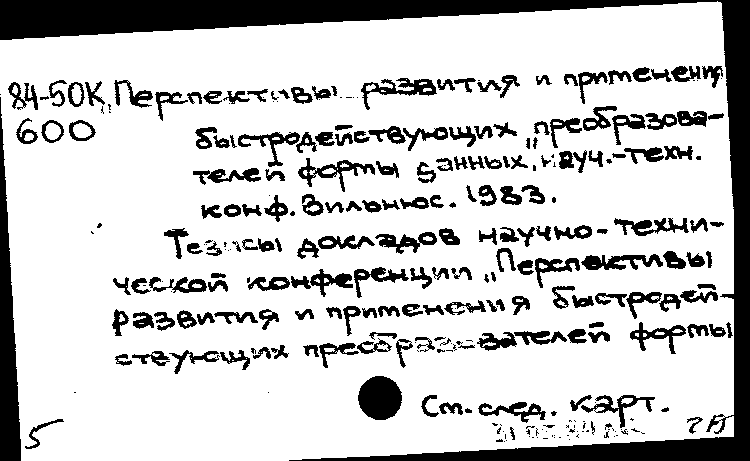 84-50К „Перспективы развития и применения
600
быстродействующих преобразова-
телей формы данных", науч.-техн.
конф. Вильнюс. 1983.
Тезисы докладов научно-техни-
ческой конференции „Перспективы
развития и применения быстродей-
ствующих преобразователей формы
См. след. карт.
5